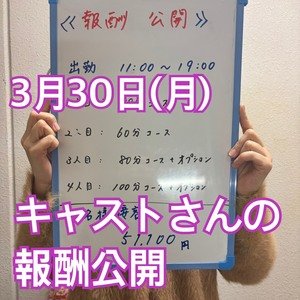 《 報酬 公開 》
出勤 11:00～19:00
3月30日(月)
2人目: 60分コース
3人目: 80分コース+オプション
4人目: 100分コース+オプション
キャストさんの
報酬公開
51,100円